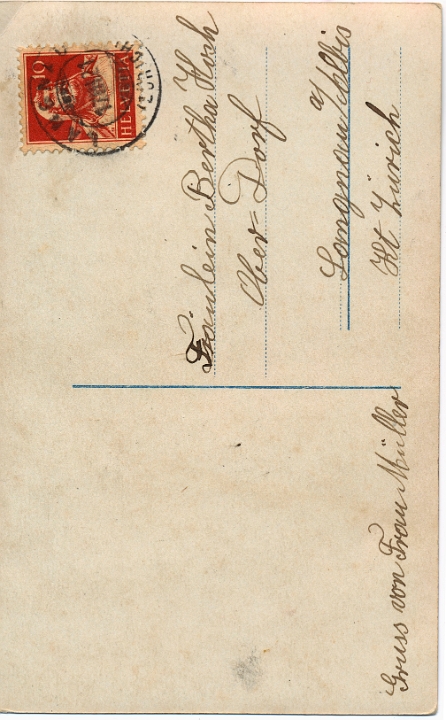 10
HELVETIA
Fräulein Bertha Hoch
Ober-Dorf
Langnau a/Albis
Kt Zürich
Gruss von Frau Müller